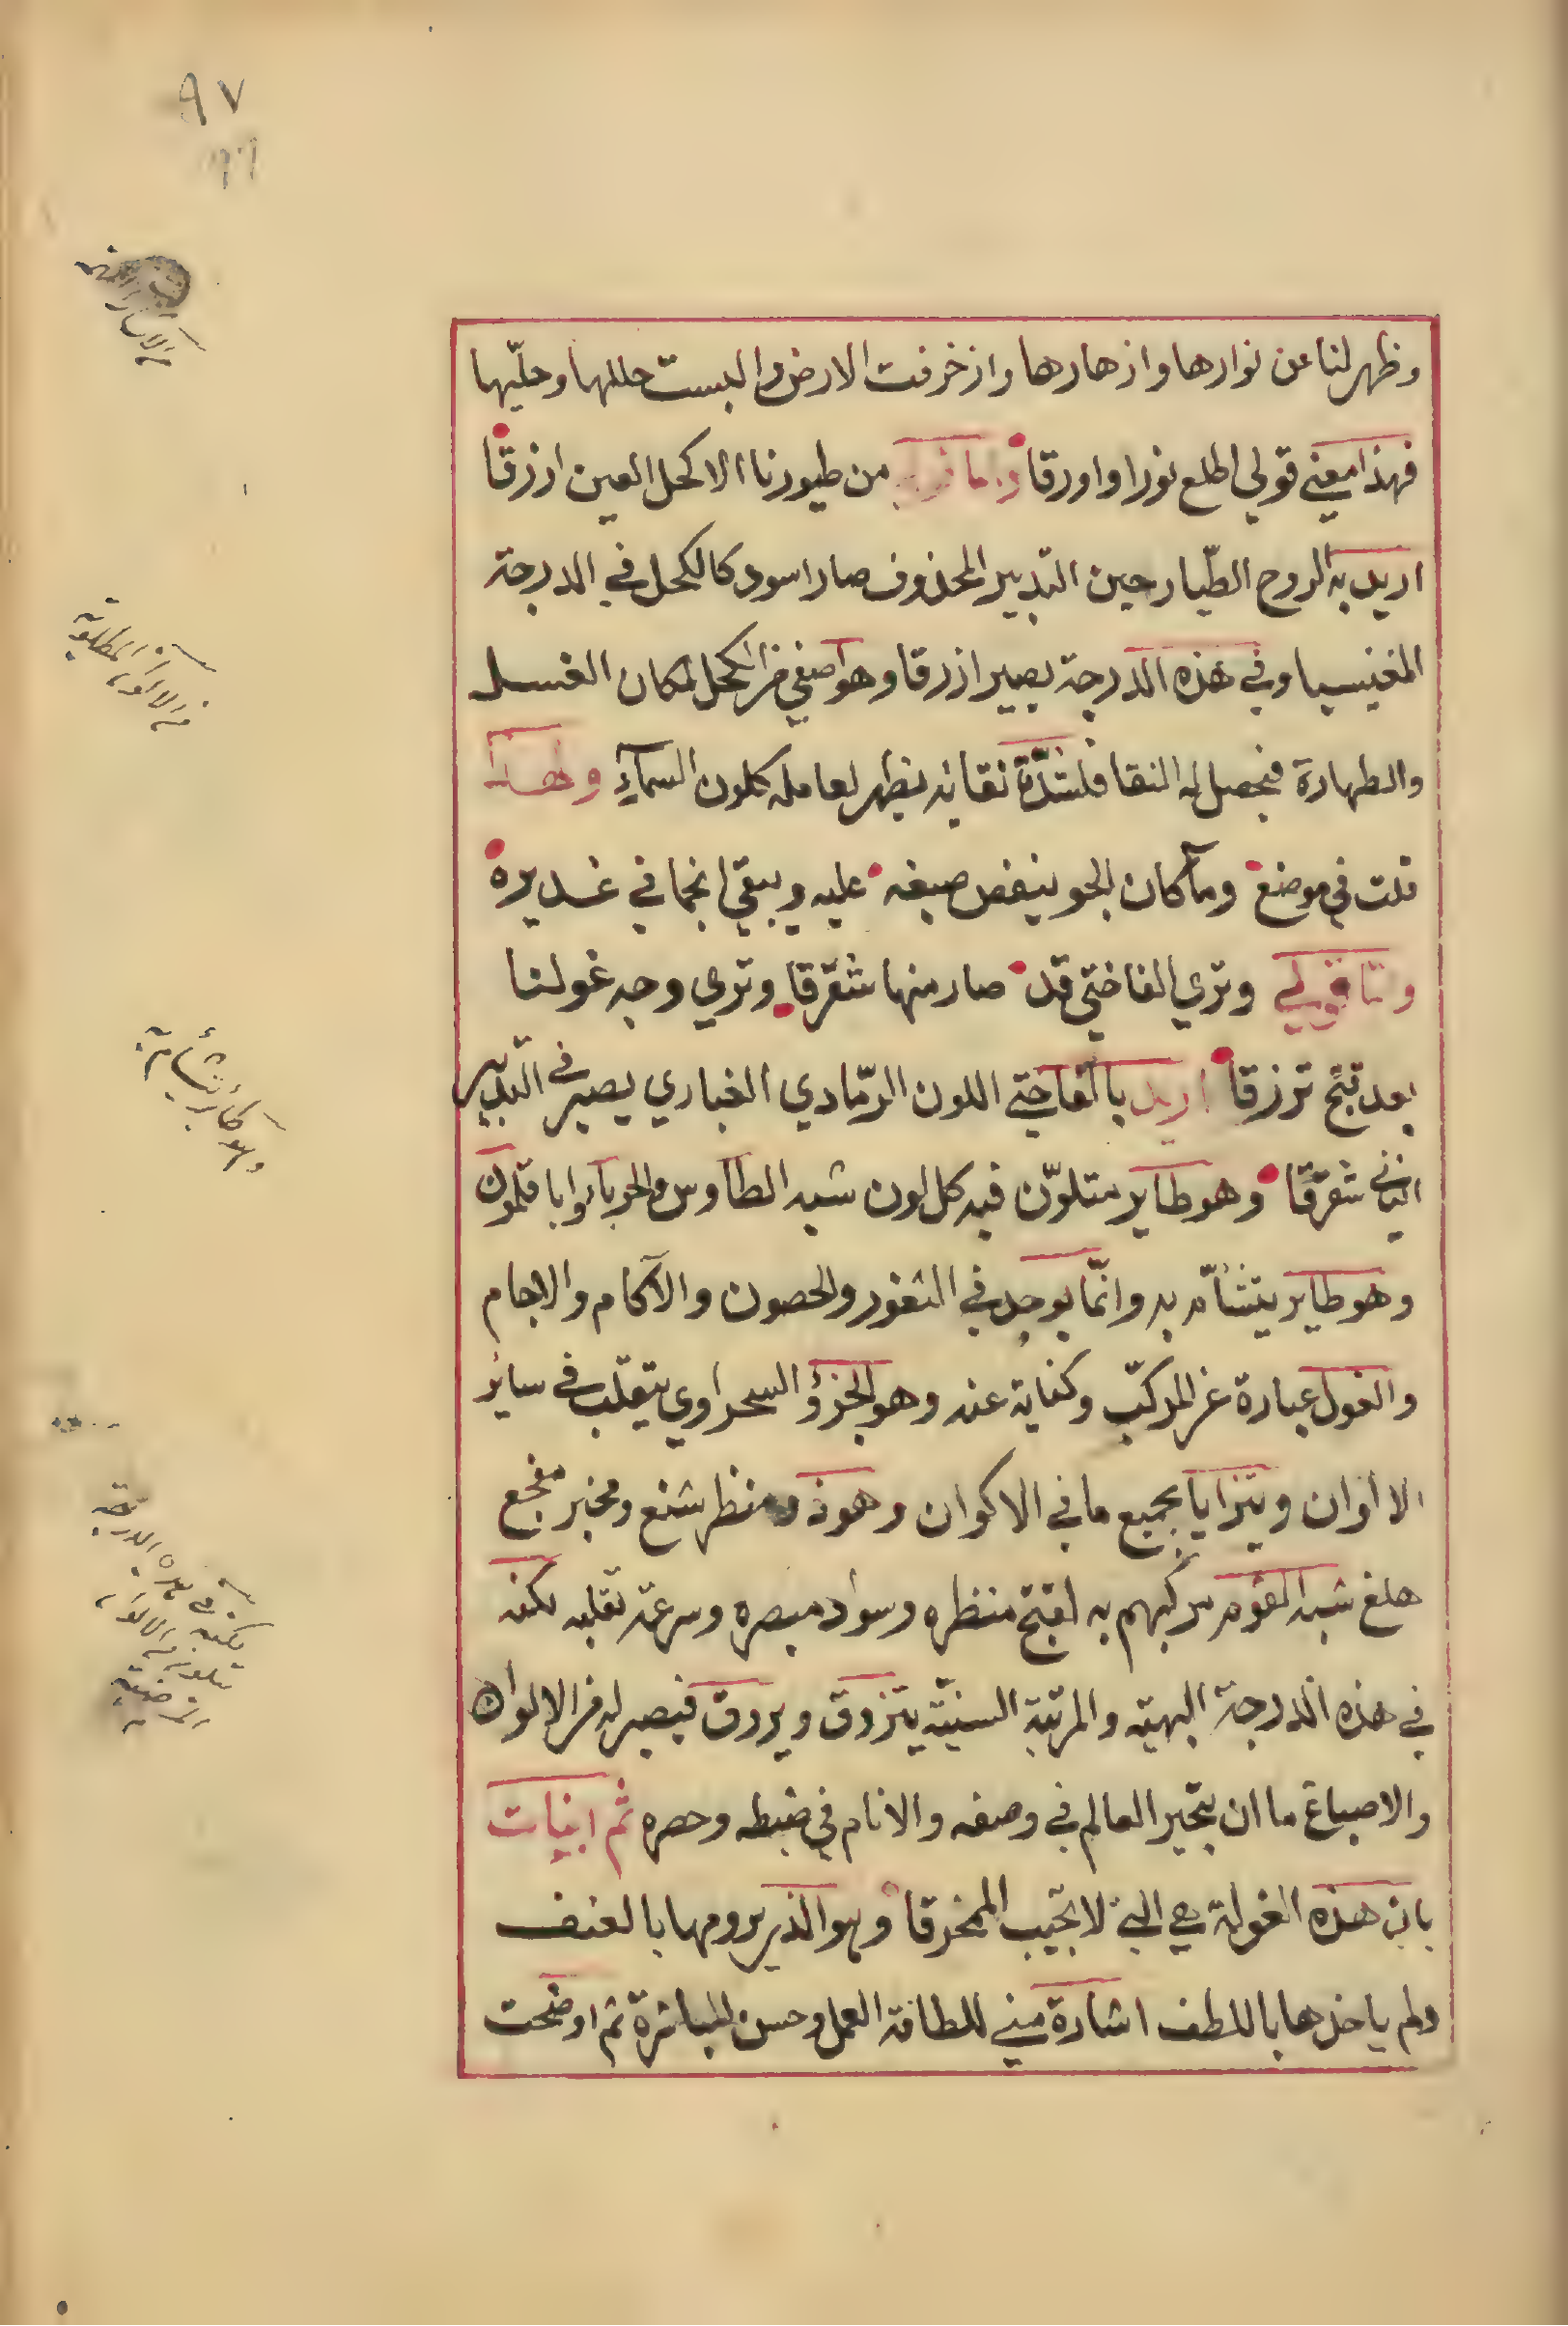 ٩٧
وظهر لنا عن نوارها وازهارها وازخرفت الارض والبست حللها وحليّها
فهذا معني قولي اطلع نورا واورقا من طيورنا الاكحل العين ازرقا
اريد به الروح الطّيار حين التدبير المحذوف صار اسود كالكحل في الدرجة
المغنيسيا وفي هذه الدرجة يصير ازرقا وهو اصفي من الكحل لمكان الغسل
والطهارة فيحصل له النقا فلشدّة نقائه يظهر لعامله كلون السمآءِ ولهذا
قلت في موضع وما كان بالجو ينفض صبغه عليه ويبقي انجما في غديره
وتا قولي وتري الفاختي قد صار منها شقرّقا وتري وجه غولنا
بعد قبح تزرقا اريد بالفاختي اللون الرّمادي الغباري يصير في التدبير
الثاني شقرّقا وهو طاير متلوّن فيه كل لون شبه الطاوس والحرباء وابا قلمون
وهو طاير يتشأم به وانّما يوجد في الثغور والحصون والآكام والاجام
والغول عبارة عن المركّب وكناية عنه وهو الجزؤ السحراوي يتقلّب في ساير
الالوان ويتزايا بجميع ما في الاكوان وهو ذو منظر شنع ومخبر مفجع
هلغ شبه القوم مركبهم به لقبح منظره وسواد مبصره وسرعة تقلبه لكنه
في هذه الدرجة البهيّه والمرتبة السنيّة يتزوق ويروق فيصير له من الالوان
والاصباغ ما ان يتحير العالم في وصفه والانام في ضبطه وحصره ثم ابنات
بان هذه الغولة هي التي لا تجيب الممخرقا وهو الذي يرومها بالعنف
ولم ياخذها باللطف اشارة مني للطافة العمل وحسن المباشرة ثم اوضحت
من الالوان المطلوبة
وهو طائر يتشأم به